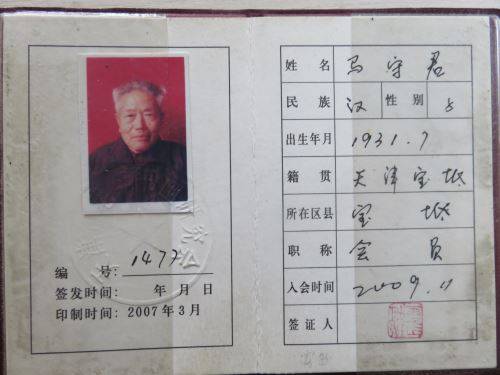 编 号: 1477
签发时间: 年 月 日
印制时间: 2007年3月
姓名 马守君
民族 汉 性别
出生年月 1931.7
籍贯 天津宝坻
所在区县 宝坻
职称 会员
入会时间 2009.11
签证人